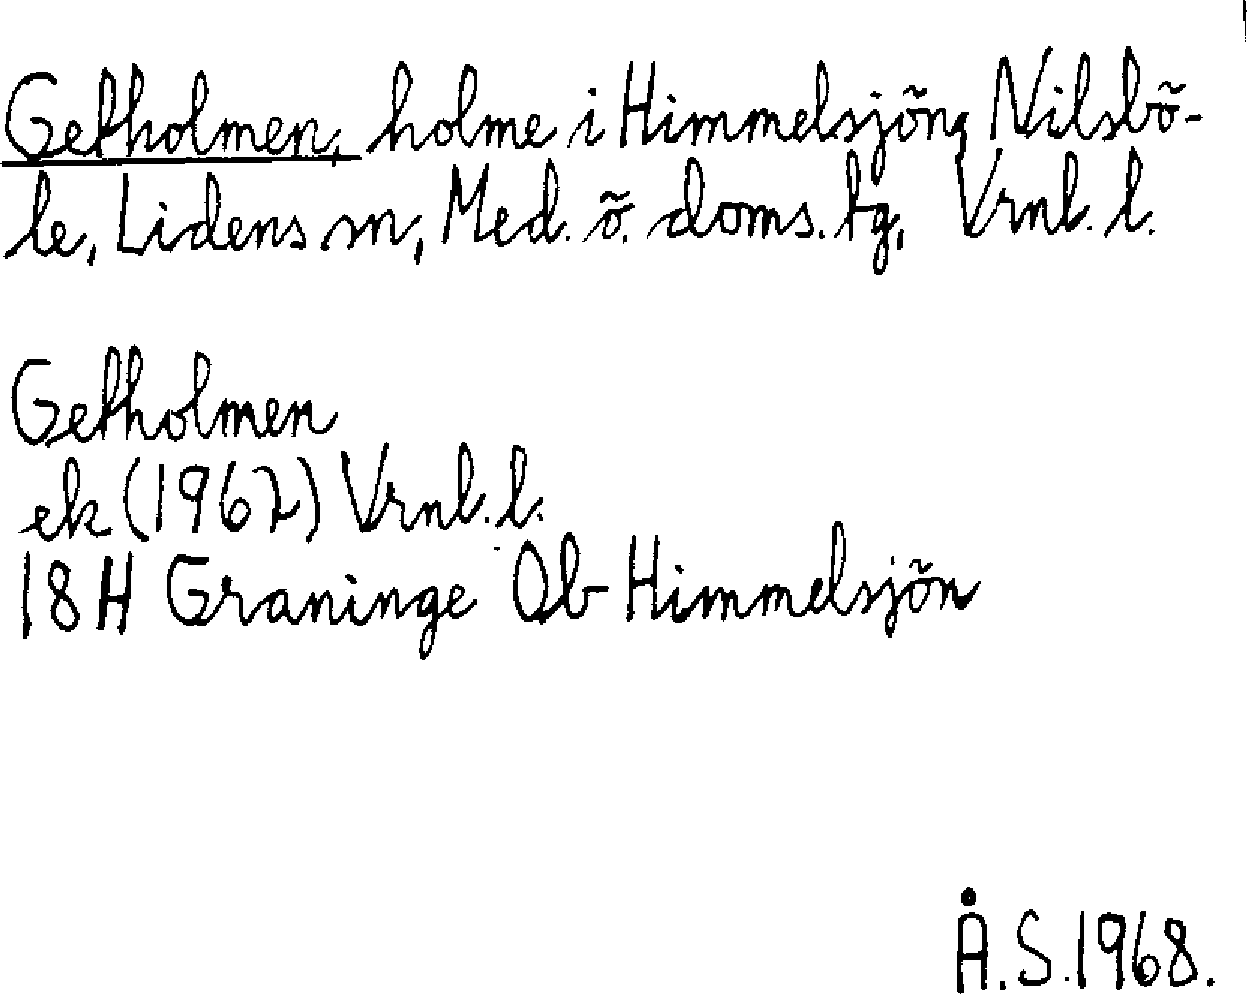 Getholmen, holme i Himmelsjön, Nilsbö-
le, Lidens sn, Med. ö. doms. tg, Vrnl. l.
Getholmen
ek (1967) Vrnl. l.
18 H Graninge Ob Himmelsjön
Å. S. 1968.